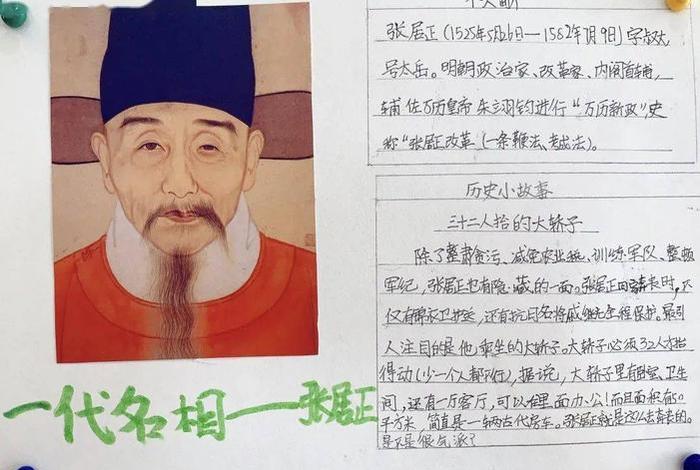 个人简介
张居正(1525年5月26日—1582年7月9日)字叔大
号太岳。明朝政治家、改革家、内阁首辅,
辅佐万历皇帝朱翊钧进行“万历新政”,史
称“张居正改革(一条鞭法、考成法)。
历史小故事
三十二人抬的大轿子
除了整肃贪污、减免农业税、训练军队、整顿
军纪,张居正也有隐藏的一面。张居正回家奔丧时,不
仅有锦衣卫护送,还有抗日名将戚继光全程保护。最引
人注目的是他乘坐的大轿子。大轿子必须32人才抬
得动(少一个人都不行),据说,大轿子里有卧室、卫生
间,还有一厅客厅,可以在里面办公!而且面积有50
平方米,简直是一辆古代房车。张居正就是这么去奔丧的。
是不是很气派?
一代名相——张居正